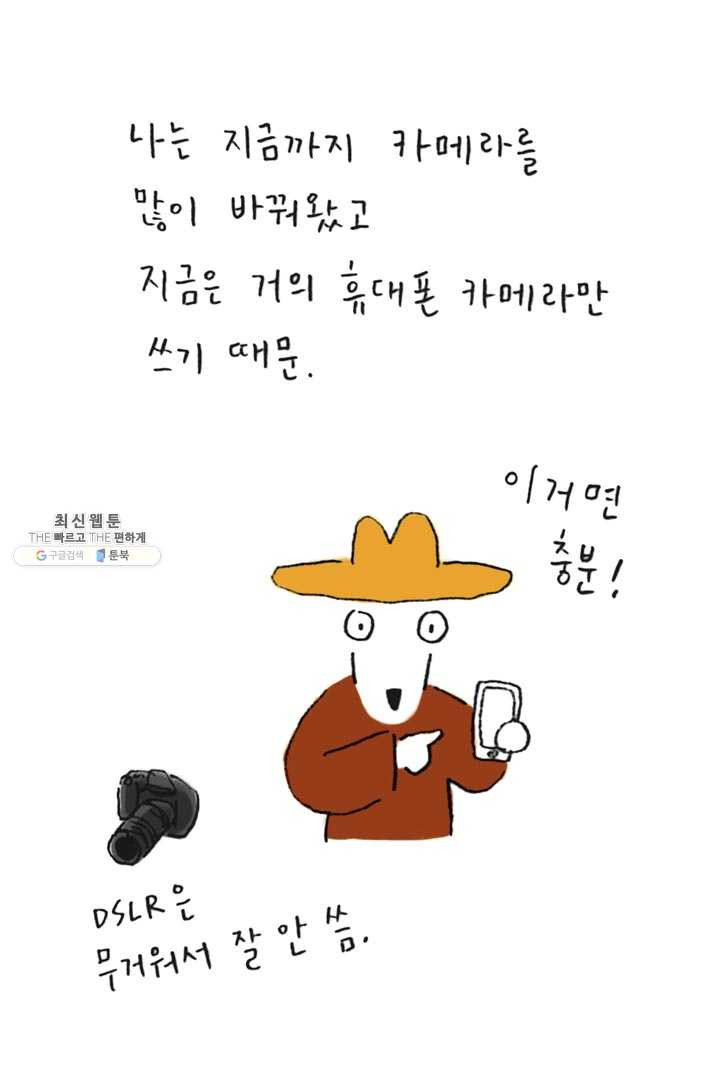 나는 지금까지 카메라를
많이 바꿔왔고
지금은 거의 휴대폰 카메라만
쓰기 때문.
이거면
충분!
최신웹툰
THE 빠르고 THE 편하게
G 구글검색 툰북
DSLR은
무거워서 잘 안 씀.